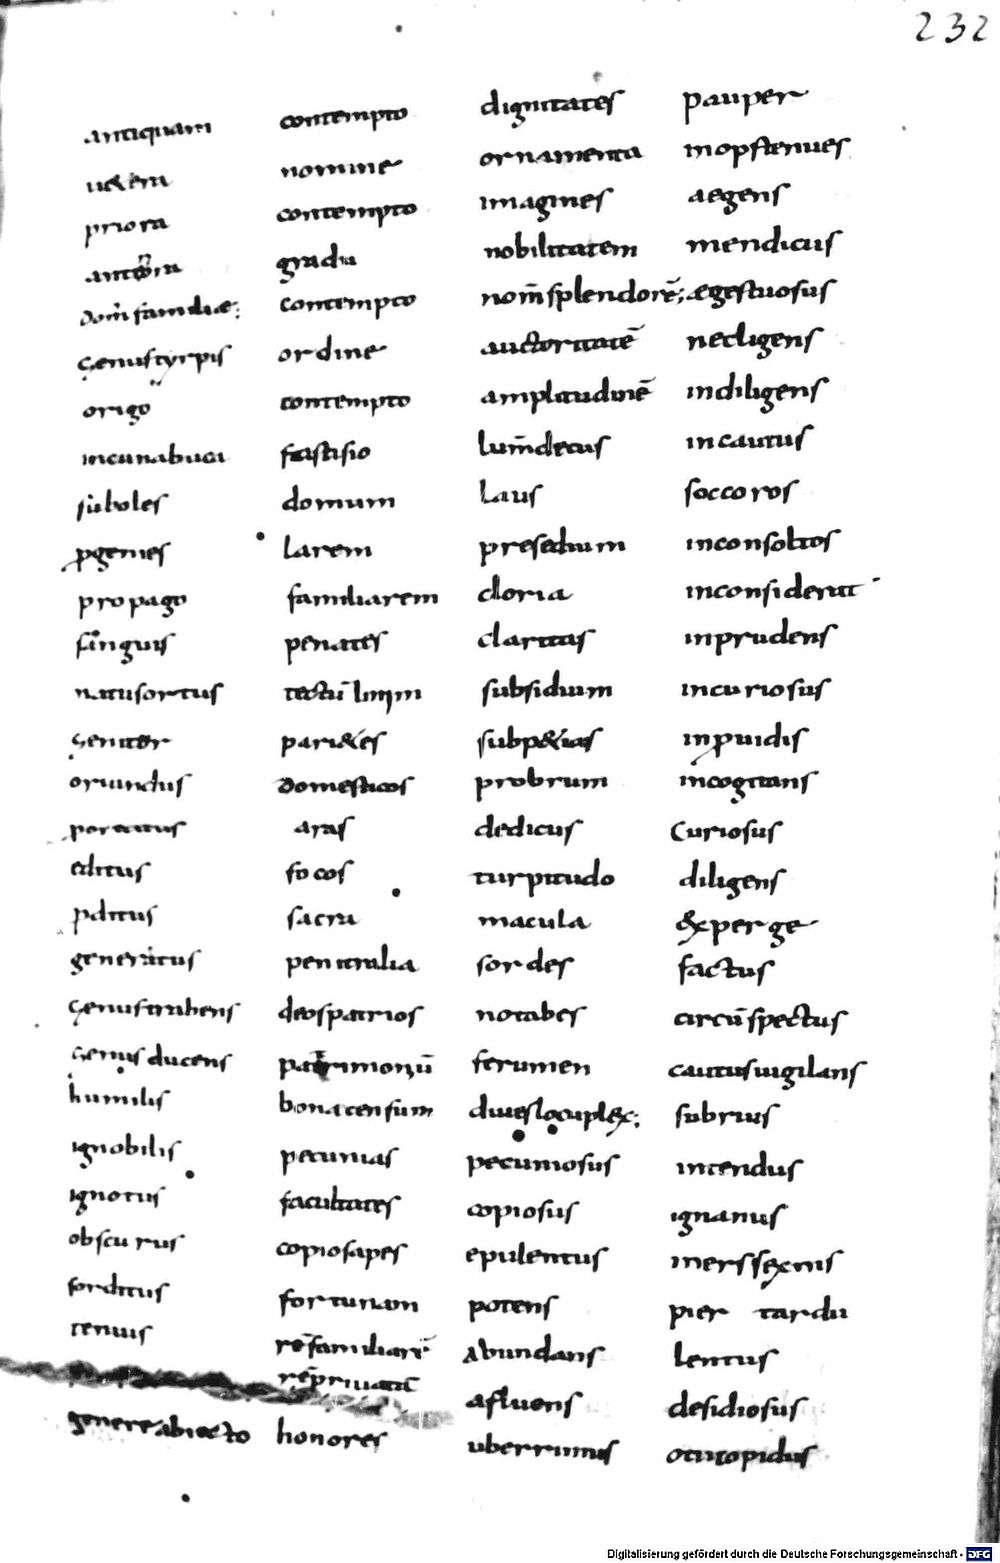 232
antiquam
uetem
priora
antiora
dom familiae;
genus tyrpis
origo
incunabuca
suboles
pgenies
propago
sanguis
natus ortus
genitor
oriundus
poratus
editus
pditus
generatus
genus trahens
genus ducens
humilis
ignobilis
ignotus
obscurus
sorditus
tenuis
genere abiecto
contempto
nomine
contempto
gradu
contempto
ordine
contempto
fastisio
domum
larem
familiarem
penates
tectū limm
parietes
domesticos
aras
focos
sacra
penitralia
deos patrios
patrimoniū
bona censum
pecunias
facultates
copias apes
fortunam
rē familiarē
rē priuatā
honores
dignitates
ornamenta
imagines
nobilitatem
nom̄ splendorē;
auctoritatē
amplitudinē
lum̄ decus
laus
presedium
cloria
claritas
subsidium
subpetias
probrum
dedicus
turpitudo
macula
sordes
notabes
ferumen
diues locuplex;
pecuniosus
copiosus
epulentus
potens
abundans
afluens
uberrimus
pauper
inops tenues
aegens
mendicus
aegestuosus
necligens
indiligens
incautus
soccoros
inconsoltos
inconsiderat
inprudens
incuriosus
inpuidis
incogitans
Curiosus
diligens
experge
factus
circūspectus
cautus uigilans
subrius
intendus
ignanus
iners sexnis
pier tardu
lentus
desidiosus
otutopidus
Digitalisierung gefördert durch die Deutsche Forschungsgemeinschaft - DFG